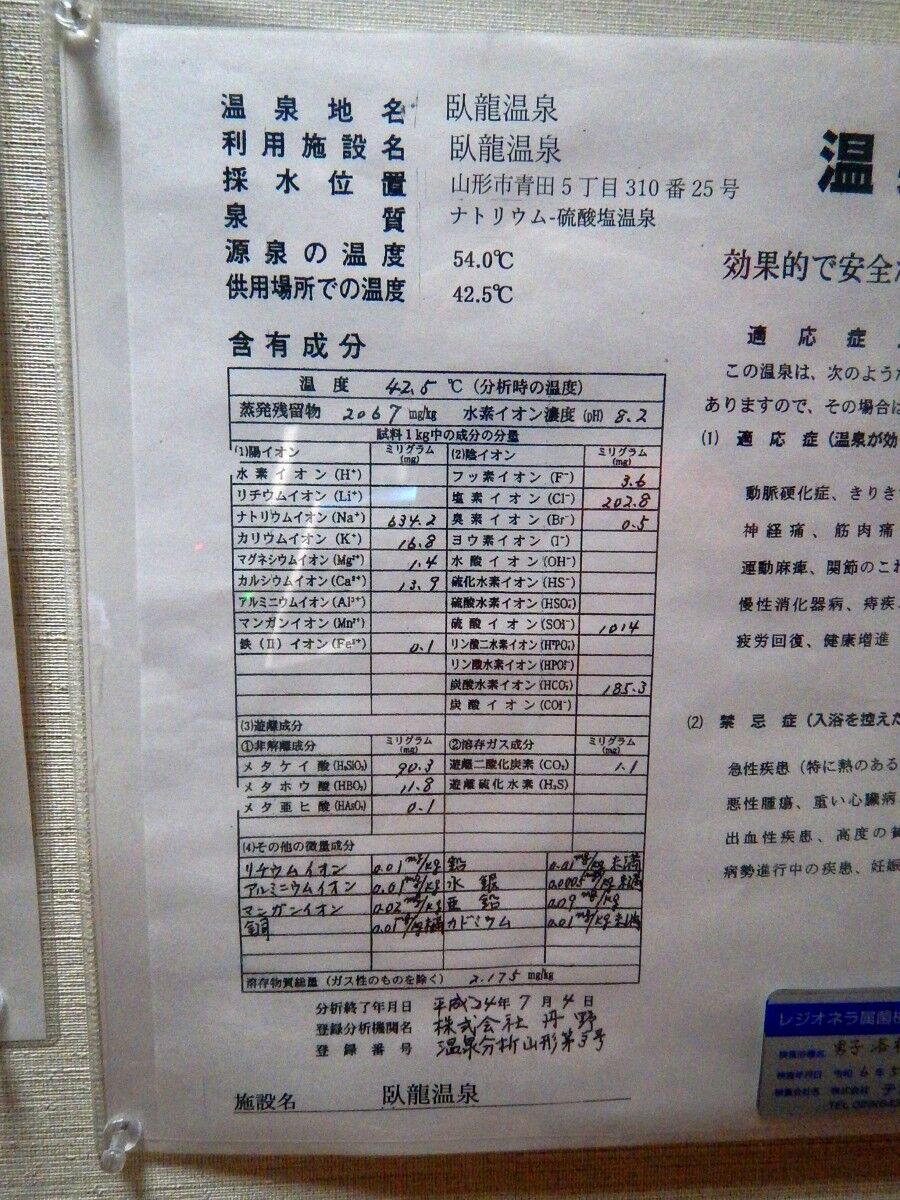 温泉地名 臥龍温泉
利用施設名 臥龍温泉
採水位置 山形市青田5丁目310番25号
泉質 ナトリウム-硫酸塩温泉
源泉の温度 54.0℃
供用場所での温度 42.5℃
含有成分
温度 42.5 ℃(分析時の温度)
蒸発残留物 2067 mg/kg 水素イオン濃度(pH) 8.2
試料1kg中の成分の分量
(1)陽イオン ミリグラム(mg) (2)陰イオン ミリグラム(mg)
水素イオン(H⁺) フッ素イオン(F⁻) 3.6
リチウムイオン(Li⁺) 塩素イオン(Cl⁻) 202.8
ナトリウムイオン(Na⁺) 634.2 臭素イオン(Br⁻) 0.5
カリウムイオン(K⁺) 16.8 ヨウ素イオン(I⁻)
マグネシウムイオン(Mg²⁺) 1.4 水酸イオン(OH⁻)
カルシウムイオン(Ca²⁺) 13.9 硫化水素イオン(HS⁻)
アルミニウムイオン(Al³⁺) 硫酸水素イオン(HSO₄⁻)
マンガンイオン(Mn²⁺) 硫酸イオン(SO₄²⁻) 1014
鉄(Ⅱ)イオン(Fe²⁺) 0.1 リン酸二水素イオン(H₂PO₄⁻)
リン酸水素イオン(HPO₄²⁻)
炭酸水素イオン(HCO₃⁻) 185.3
炭酸イオン(CO₃²⁻)
(3)遊離成分
①非解離成分 ミリグラム(mg) ②溶存ガス成分 ミリグラム(mg)
メタケイ酸(H₂SiO₃) 90.3 遊離二酸化炭素(CO₂) 1.1
メタホウ酸(HBO₂) 11.8 遊離硫化水素(H₂S)
メタ亜ヒ酸(HAsO₂) 0.1
(4)その他の微量成分
リチウムイオン 0.01mg/kg 鉛 0.01mg/kg未満
アルミニウムイオン 0.01mg/kg 水銀 0.0005mg/kg未満
マンガンイオン 0.02mg/kg 亜鉛 0.09mg/kg
銅 0.01mg/kg未満 カドミウム 0.01mg/kg未満
溶存物質総量(ガス性のものを除く) 2.175 mg/kg
分析終了年月日 平成24年7月4日
登録分析機関名 株式会社 丹野
登録番号 温泉分析山形第3号
施設名 臥龍温泉
温
効果的で安全
適応症
この温泉は、次のよう
ありますので、その場合は
(1) 適応症(温泉が効
動脈硬化症、きりき
神経痛、筋肉痛
運動麻痺、関節のこ
慢性消化器病、痔疾、
疲労回復、健康増進
(2) 禁忌症(入浴を控えた
急性疾患(特に熱のある
悪性腫瘍、重い心臓病
出血性疾患、高度の貧
病勢進行中の疾患、妊娠
レジオネラ属菌
男子
検査年月日 令和6年5
検査会社名 株式会社